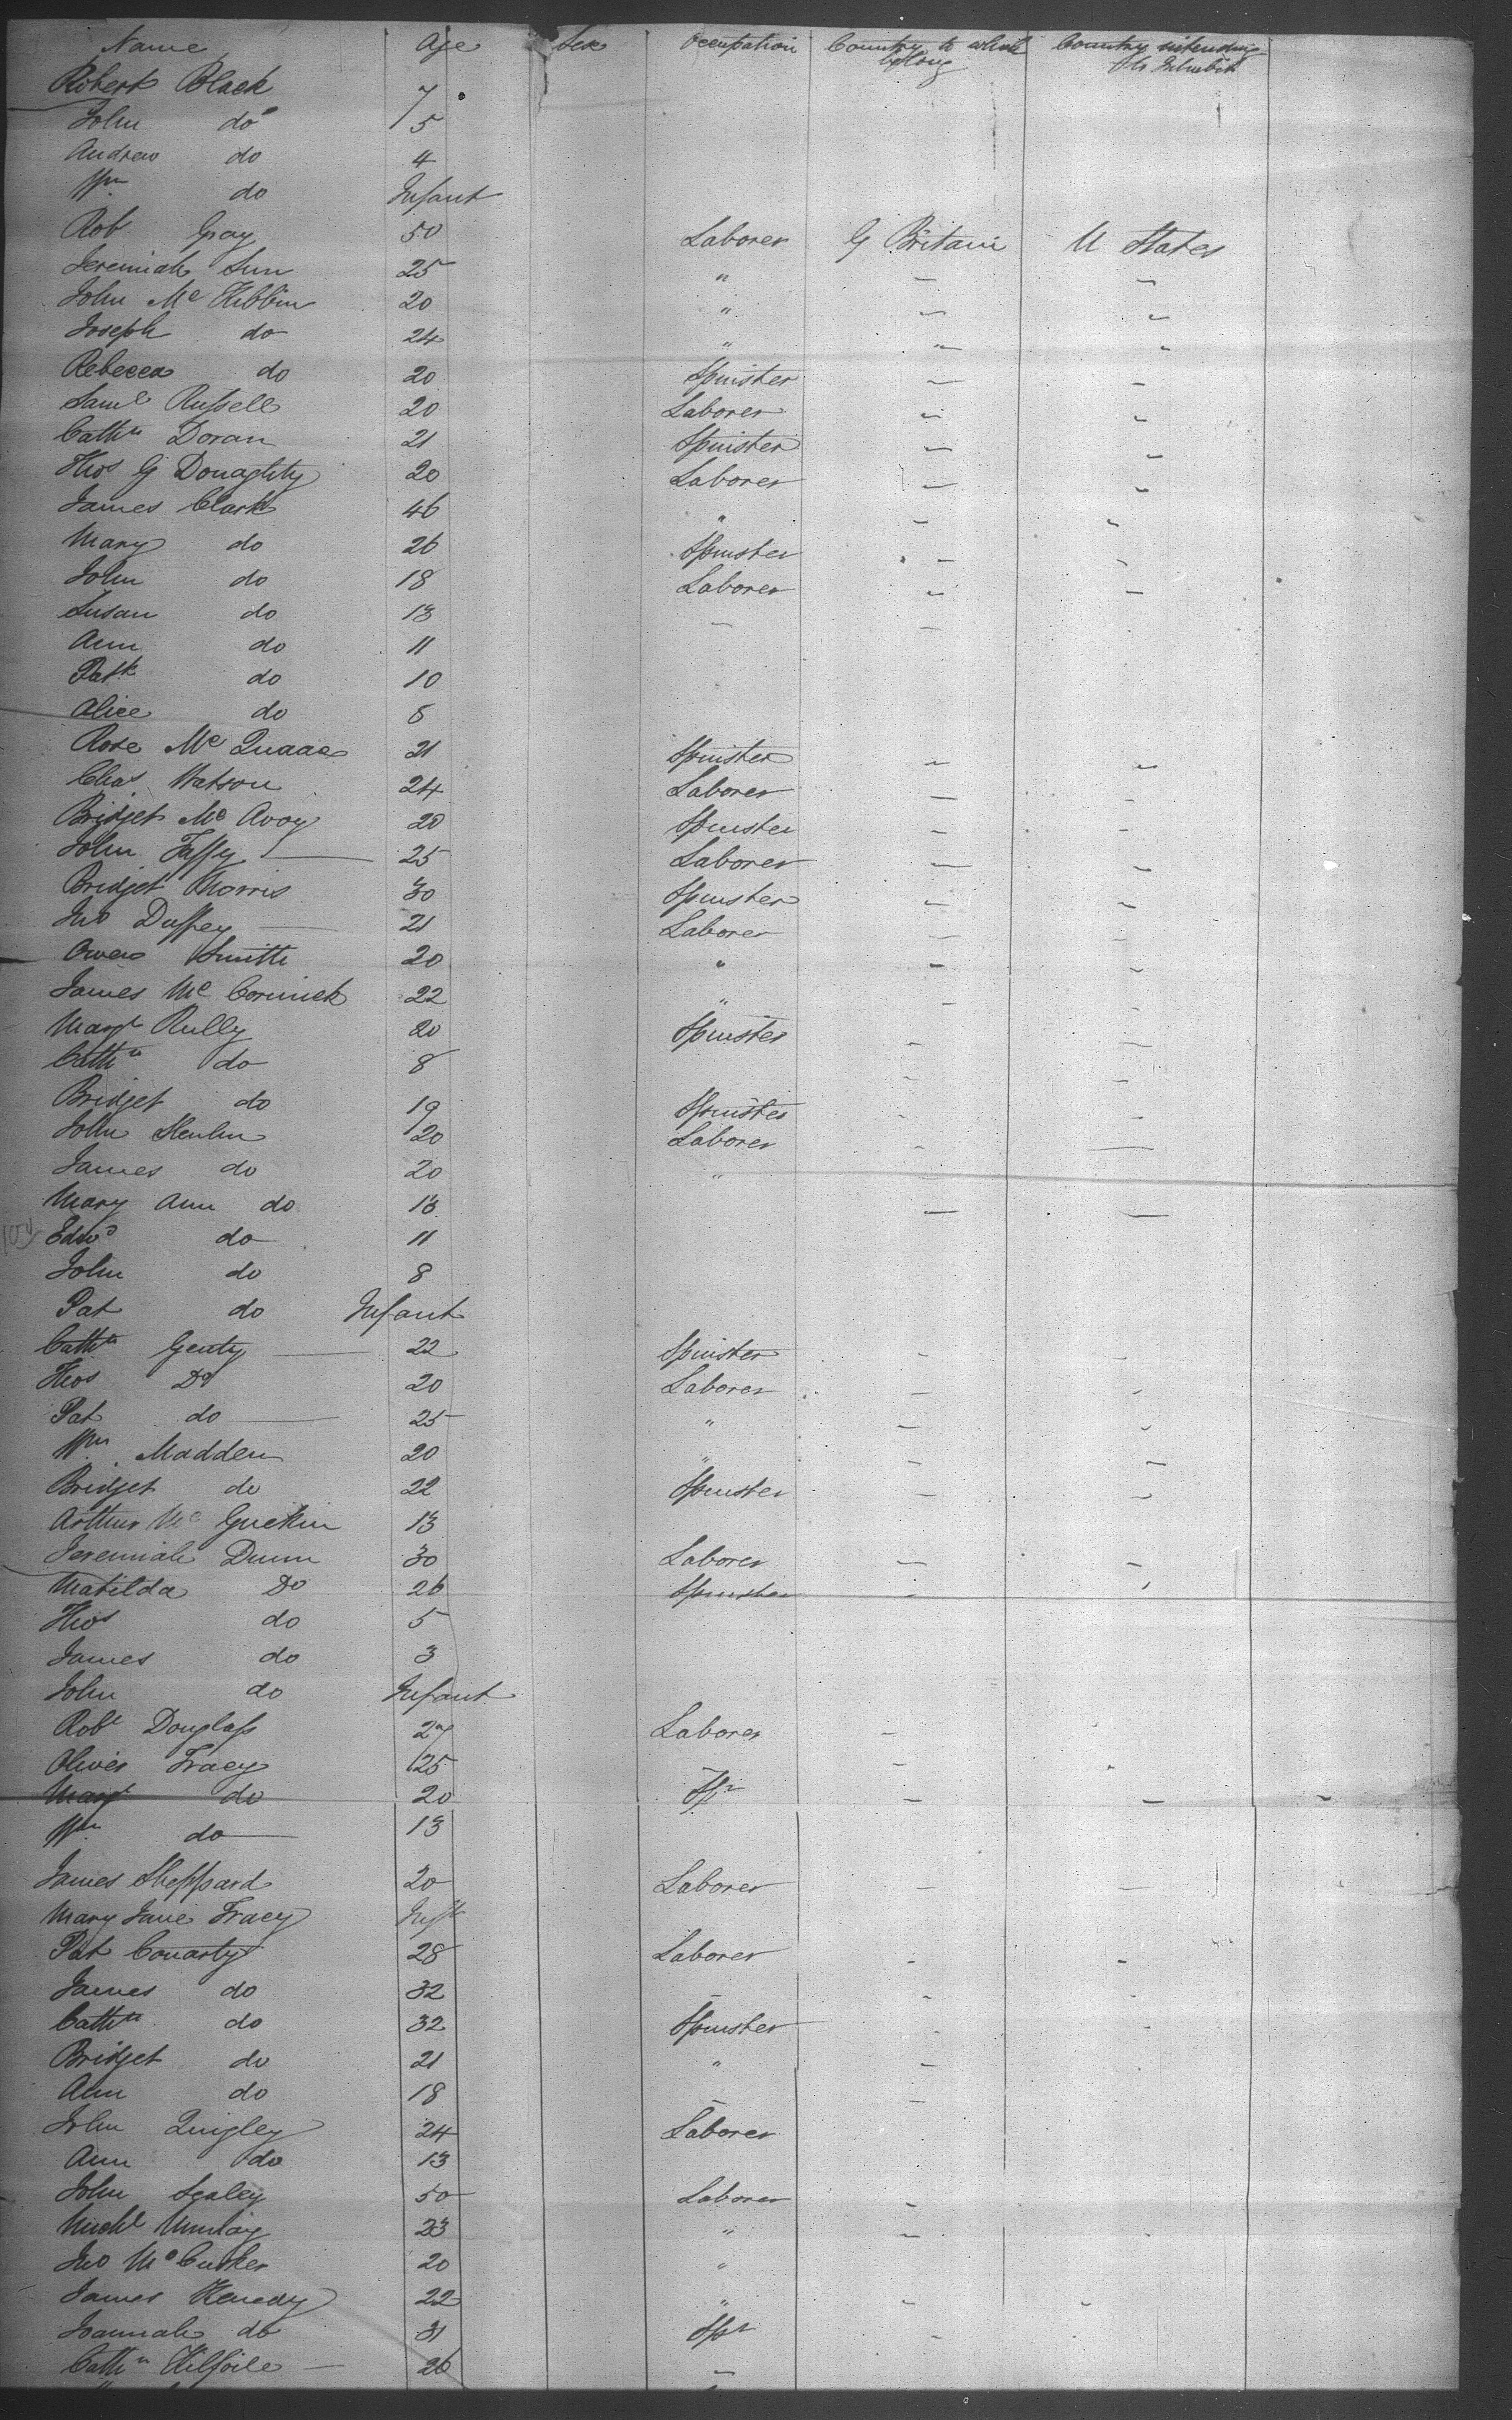 Name Age Sex Occupation Country to which belong Country intending to Inhabit
Robert Black 7
John do 5
Andrew do 4
Wm do Infant
Rob Gray 50 Laborer G Britain U States
Jeremiah 25 " — —
John Mc Kibbin 20 " — —
Joseph do 24 " — —
Rebecca do 20 Spinster — —
Saml Russell 20 Laborer — —
Cathn Doran 21 Spinster — —
Thos G Donaghty 20 Laborer — —
James Clark 46 " — —
Mary do 26 Spinster — —
John do 18 Laborer — —
Susan do 13 — —
Ann do 11
Patk do 10
Alice do 5
Rose Mc 21 Spinster — —
Chas Watson 24 Laborer — —
Bridget Mc Avoy 20 Spinster — —
John Taffy 25 Laborer — —
Bridget Morris 30 Spinster — —
Jno Duffey 21 Laborer — —
Owen Smith 20 " — —
James Mc Cormick 22 " — —
Margt Rully 20 Spinster — —
Cathn do 8 — —
Bridget do 19 Spinster — —
John 20 Laborer — —
James do 20 " —
Mary Ann do 13 — —
Edwd do 11
John do 8
Pat do Infant
Cathn Genty 22 Spinster — —
Thos Do 20 Laborer — —
Pat do 25 " — —
Wm Madden 20 " — —
Bridget do 22 Spinster — —
Arthur Mc Guckin 13
Jeremiah Dunn 30 Laborer — —
Matilda Do 26 Spinster — —
Thos do 5
James do 3
John do Infant
Robt Douglass 27 Laborer — —
Oliver Tracy 25 — —
Margt do 20 Spr — — —
Wm do 13
James Sheppard 20 Laborer — —
Mary Jane Tracy Inft
Pat Conarty 28 Laborer — —
James do 32 — — —
Cathn do 32 Spinster — —
Bridget do 21 " —
Ann do 18 — —
John Quigley 24 Laborer
Ann do 13
John Sealey 50 Laborer —
Michl Murray 23 " —
Jno Mc Cusker 20 "
James Kenedy 22 " — —
Joannah do 31 Spr —
Cathn Kilfoile 26 —